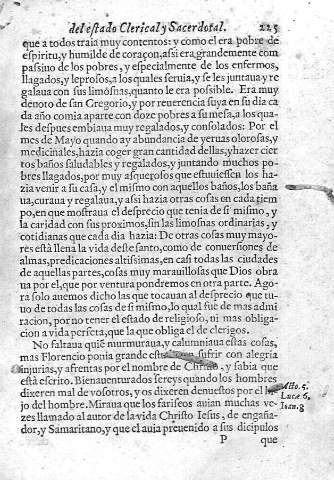 del estado Clerical, y Sacerdotal. 225
que a todos traia muy contentos: y como el era pobre de
espiritu, y humilde de coraçon, assi era grandemente com
passiuo de los pobres, y especialmente de los enfermos,
llagados, y leprosos, a los quales seruia, y se les juntaua y re-
galaua con sus limosnas, quanto le era possible. Era muy
deuoto de san Gregorio, y por reuerencia suya en su dia ca
da año comia aparte con doze pobres a su mesa, a los qua-
les despues embiaua muy regalados, y consolados: Por el
mes de Mayo quando ay abundancia de yeruas olorosas, y
medicinales, hazia coger gran cantidad dellas, y hazer cier
tos baños saludables y regalados, y juntando muchos po-
bres llagados, por muy asquerosos que estuuiessen los ha-
zia venir a su casa, y el mismo con aquellos baños, los baña
ua, curaua y regalaua, y assi hazia otras cosas en cada tiem
po, en que mostraua el desprecio que tenia de si mismo, y
la caridad con sus proximos, sin las limosnas ordinarias, y
cotidianas que cada dia hazia: De otras cosas muy mayo-
res està llena la vida deste santo, como de conuersiones de
almas, predicaciones altissimas, en casi todas las ciudades
de aquellas partes, cosas muy marauillosas que Dios obra
ua por el, que por ventura pondremos en otra parte. Ago
ra solo auemos dicho las que tocauan al desprecio que tu-
uo de todas las cosas de si mismo, lo qual fue de mas admi
racion, por no tener el estado de religioso, ni mas obliga-
cion a vida perfeta, que la que obliga el de clerigos.
No faltaua quiè murmuraua, y calumniaua estas cosas,
mas Florencio ponia grande sufrir con alegria
injurias, y afrentas por el nombre de Christo, y sabia que
està escrito. Bienauenturados sereys quando los hombres
dixeren mal de vosotros, y os dixeren denuestos por el hi-
jo del hombre. Miraua que los fariseos auian muchas ve-
zes llamado al autor de la vida Christo Iesus, de engaña-
dor, y Samaritano, y que el auia preuenido a sus dicipulos
P que
Acto. 5.
Lucæ 6,
Ioan. 8